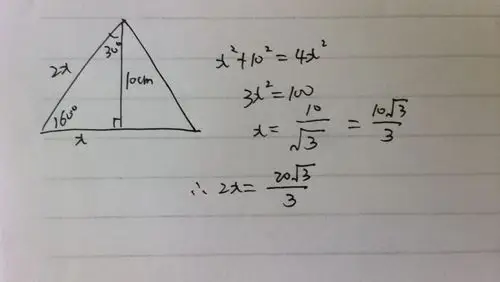 30°
2x
10cm
60°
x
x²+10²=4x²
3x²=100
x=10/√3=10√3/3
∴ 2x=20√3/3